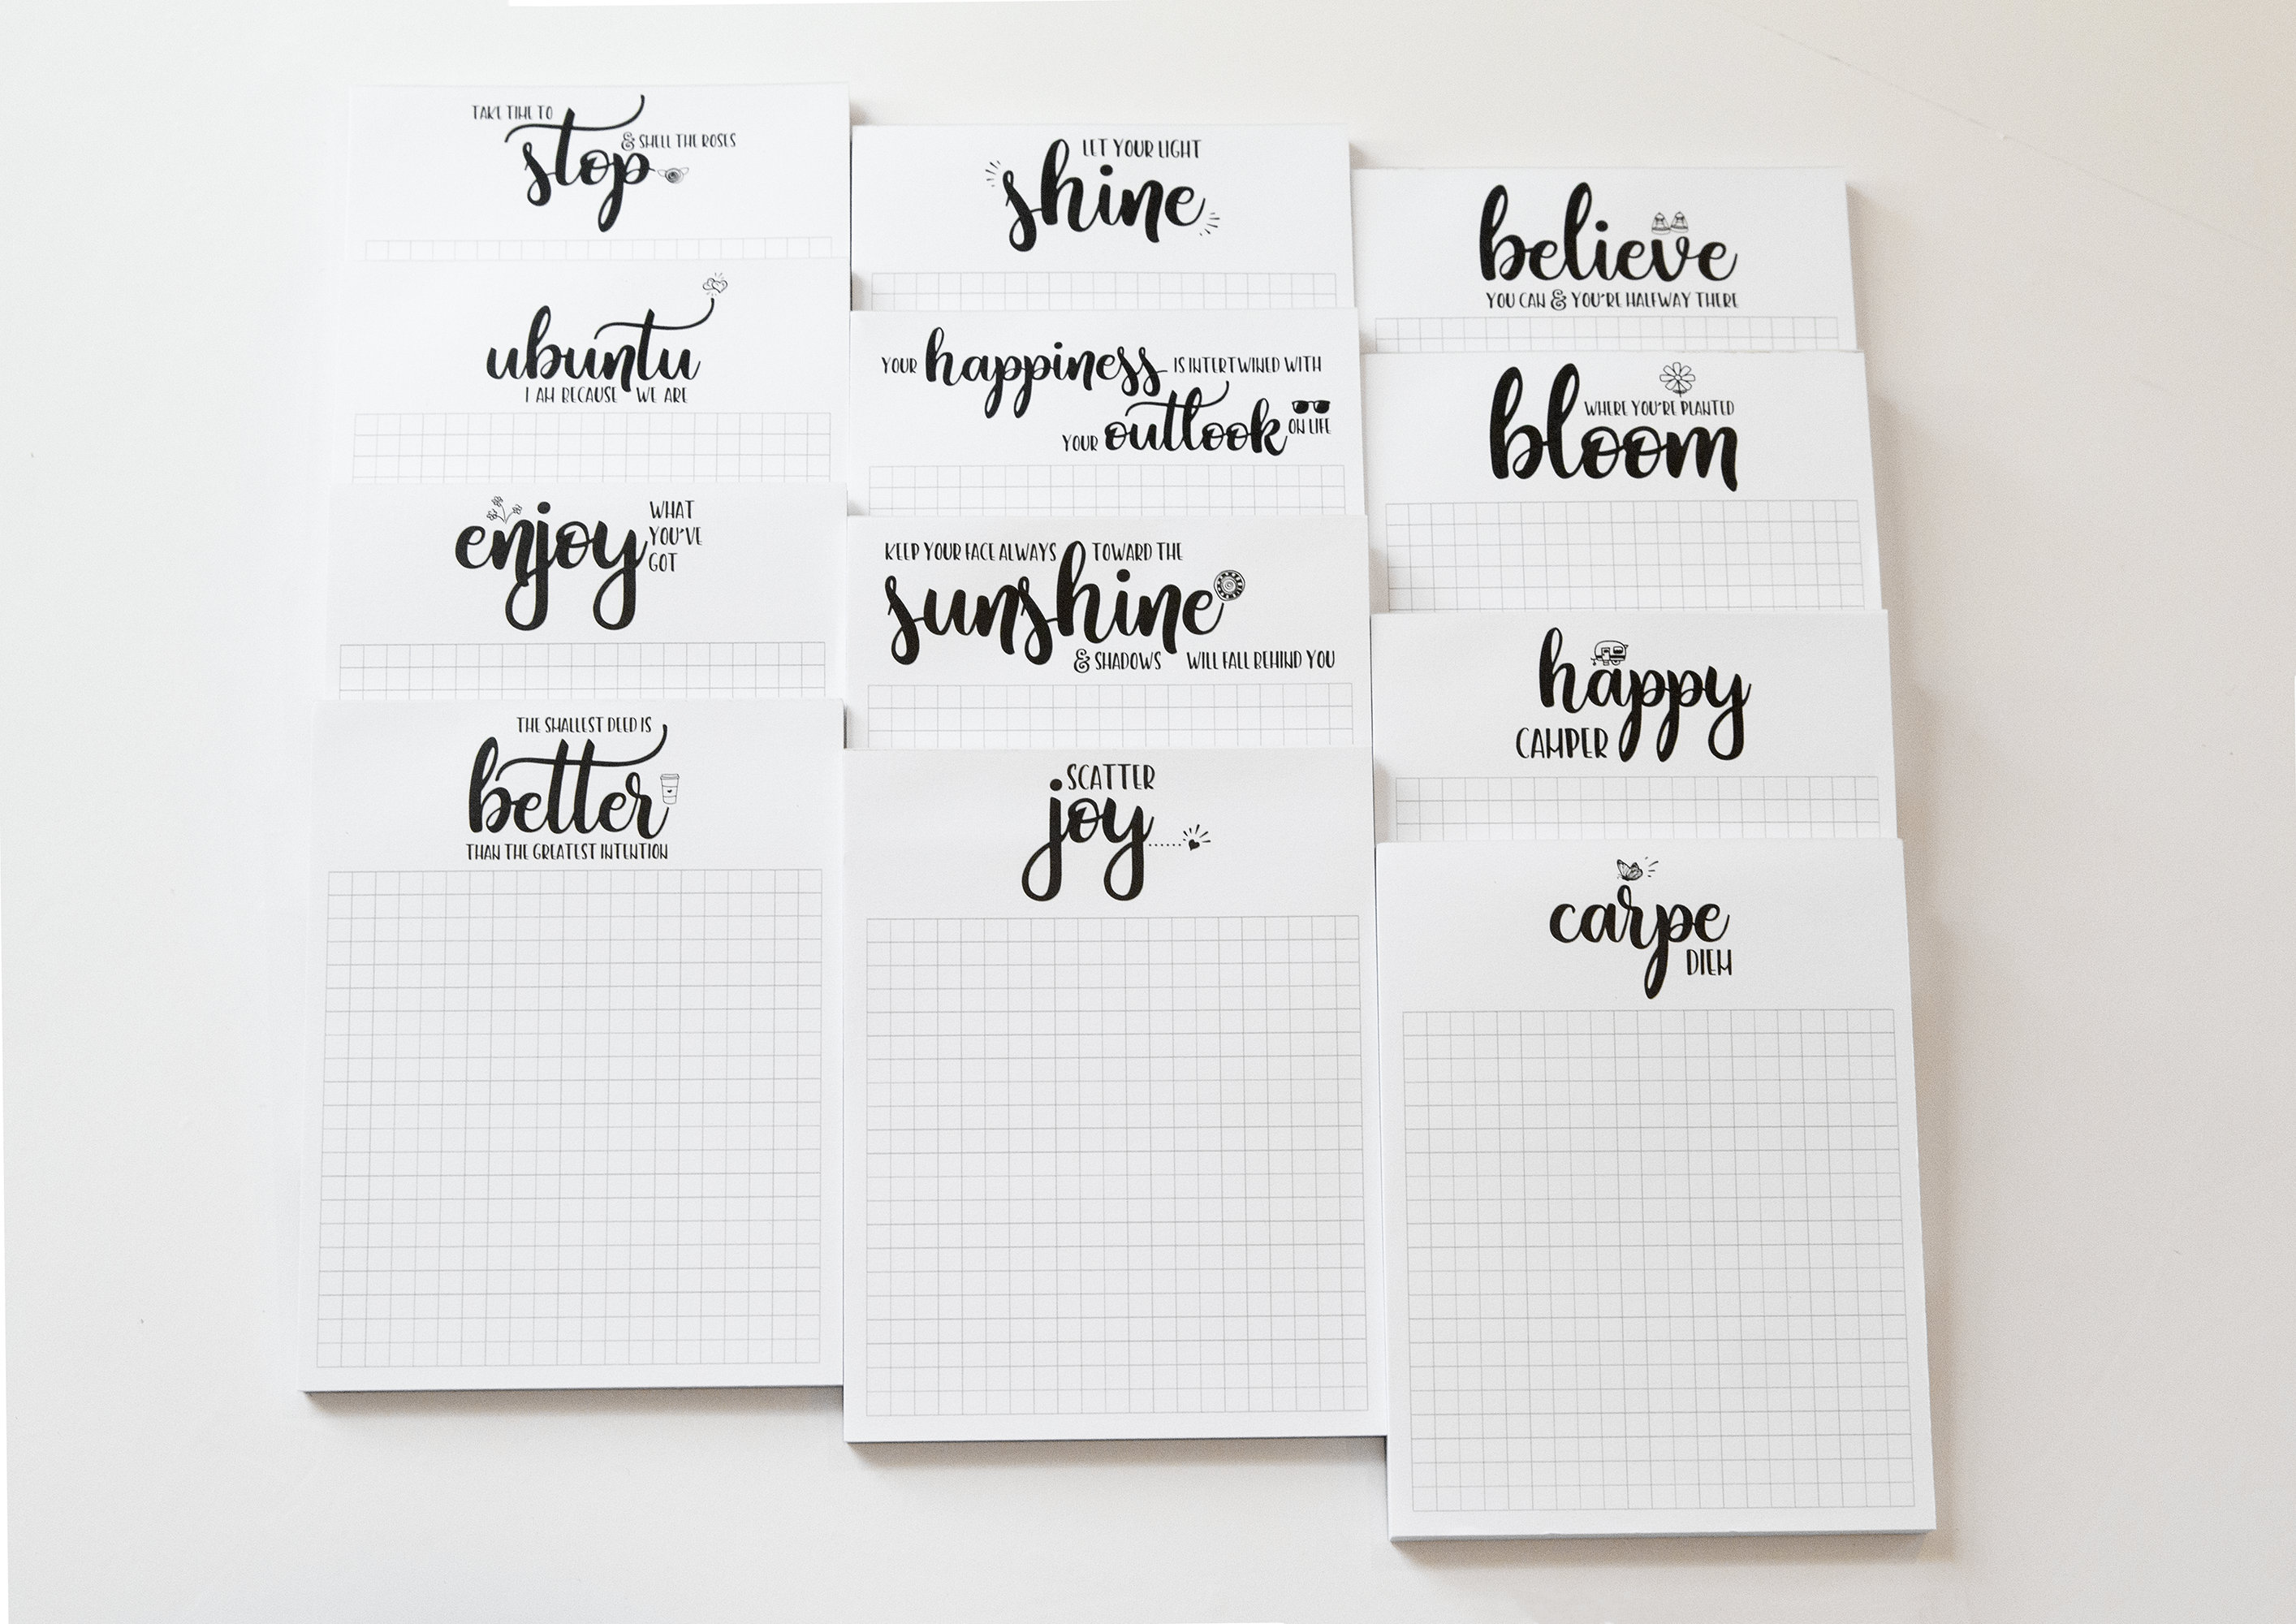 TAKE TIME TO
stop
& SMELL THE ROSES
ubuntu
I AM BECAUSE WE ARE
enjoy
WHAT
YOU'VE
GOT
THE SMALLEST DEED IS
better
THAN THE GREATEST INTENTION
LET YOUR LIGHT
shine
YOUR happiness IS INTERTWINED WITH
YOUR outlook ON LIFE
KEEP YOUR FACE ALWAYS TOWARD THE
sunshine
& SHADOWS WILL FALL BEHIND YOU
SCATTER
joy
believe
YOU CAN & YOU'RE HALFWAY THERE
WHERE YOU'RE PLANTED
bloom
happy
CAMPER
carpe
DIEM